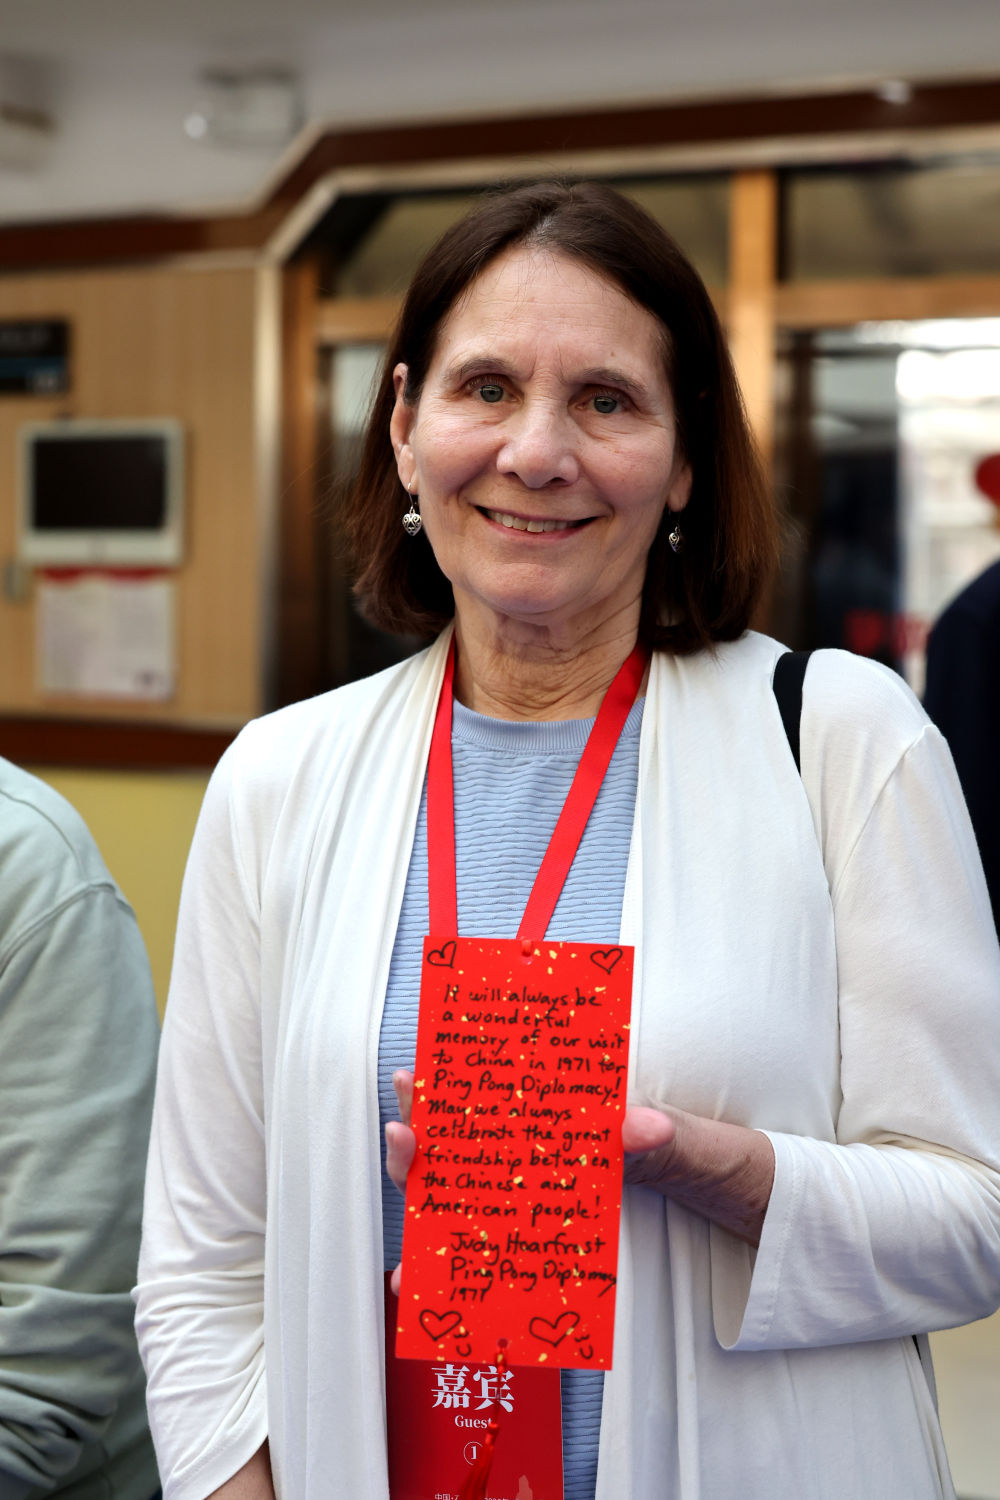 It will always be
a wonderful
memory of our visit
to China in 1971 for
Ping Pong Diplomacy!
May we always
celebrate the great
friendship between
the Chinese and
American people!
Judy Hoarfrost
Ping Pong Diplomacy
1971
嘉宾
Guest
1
中国·